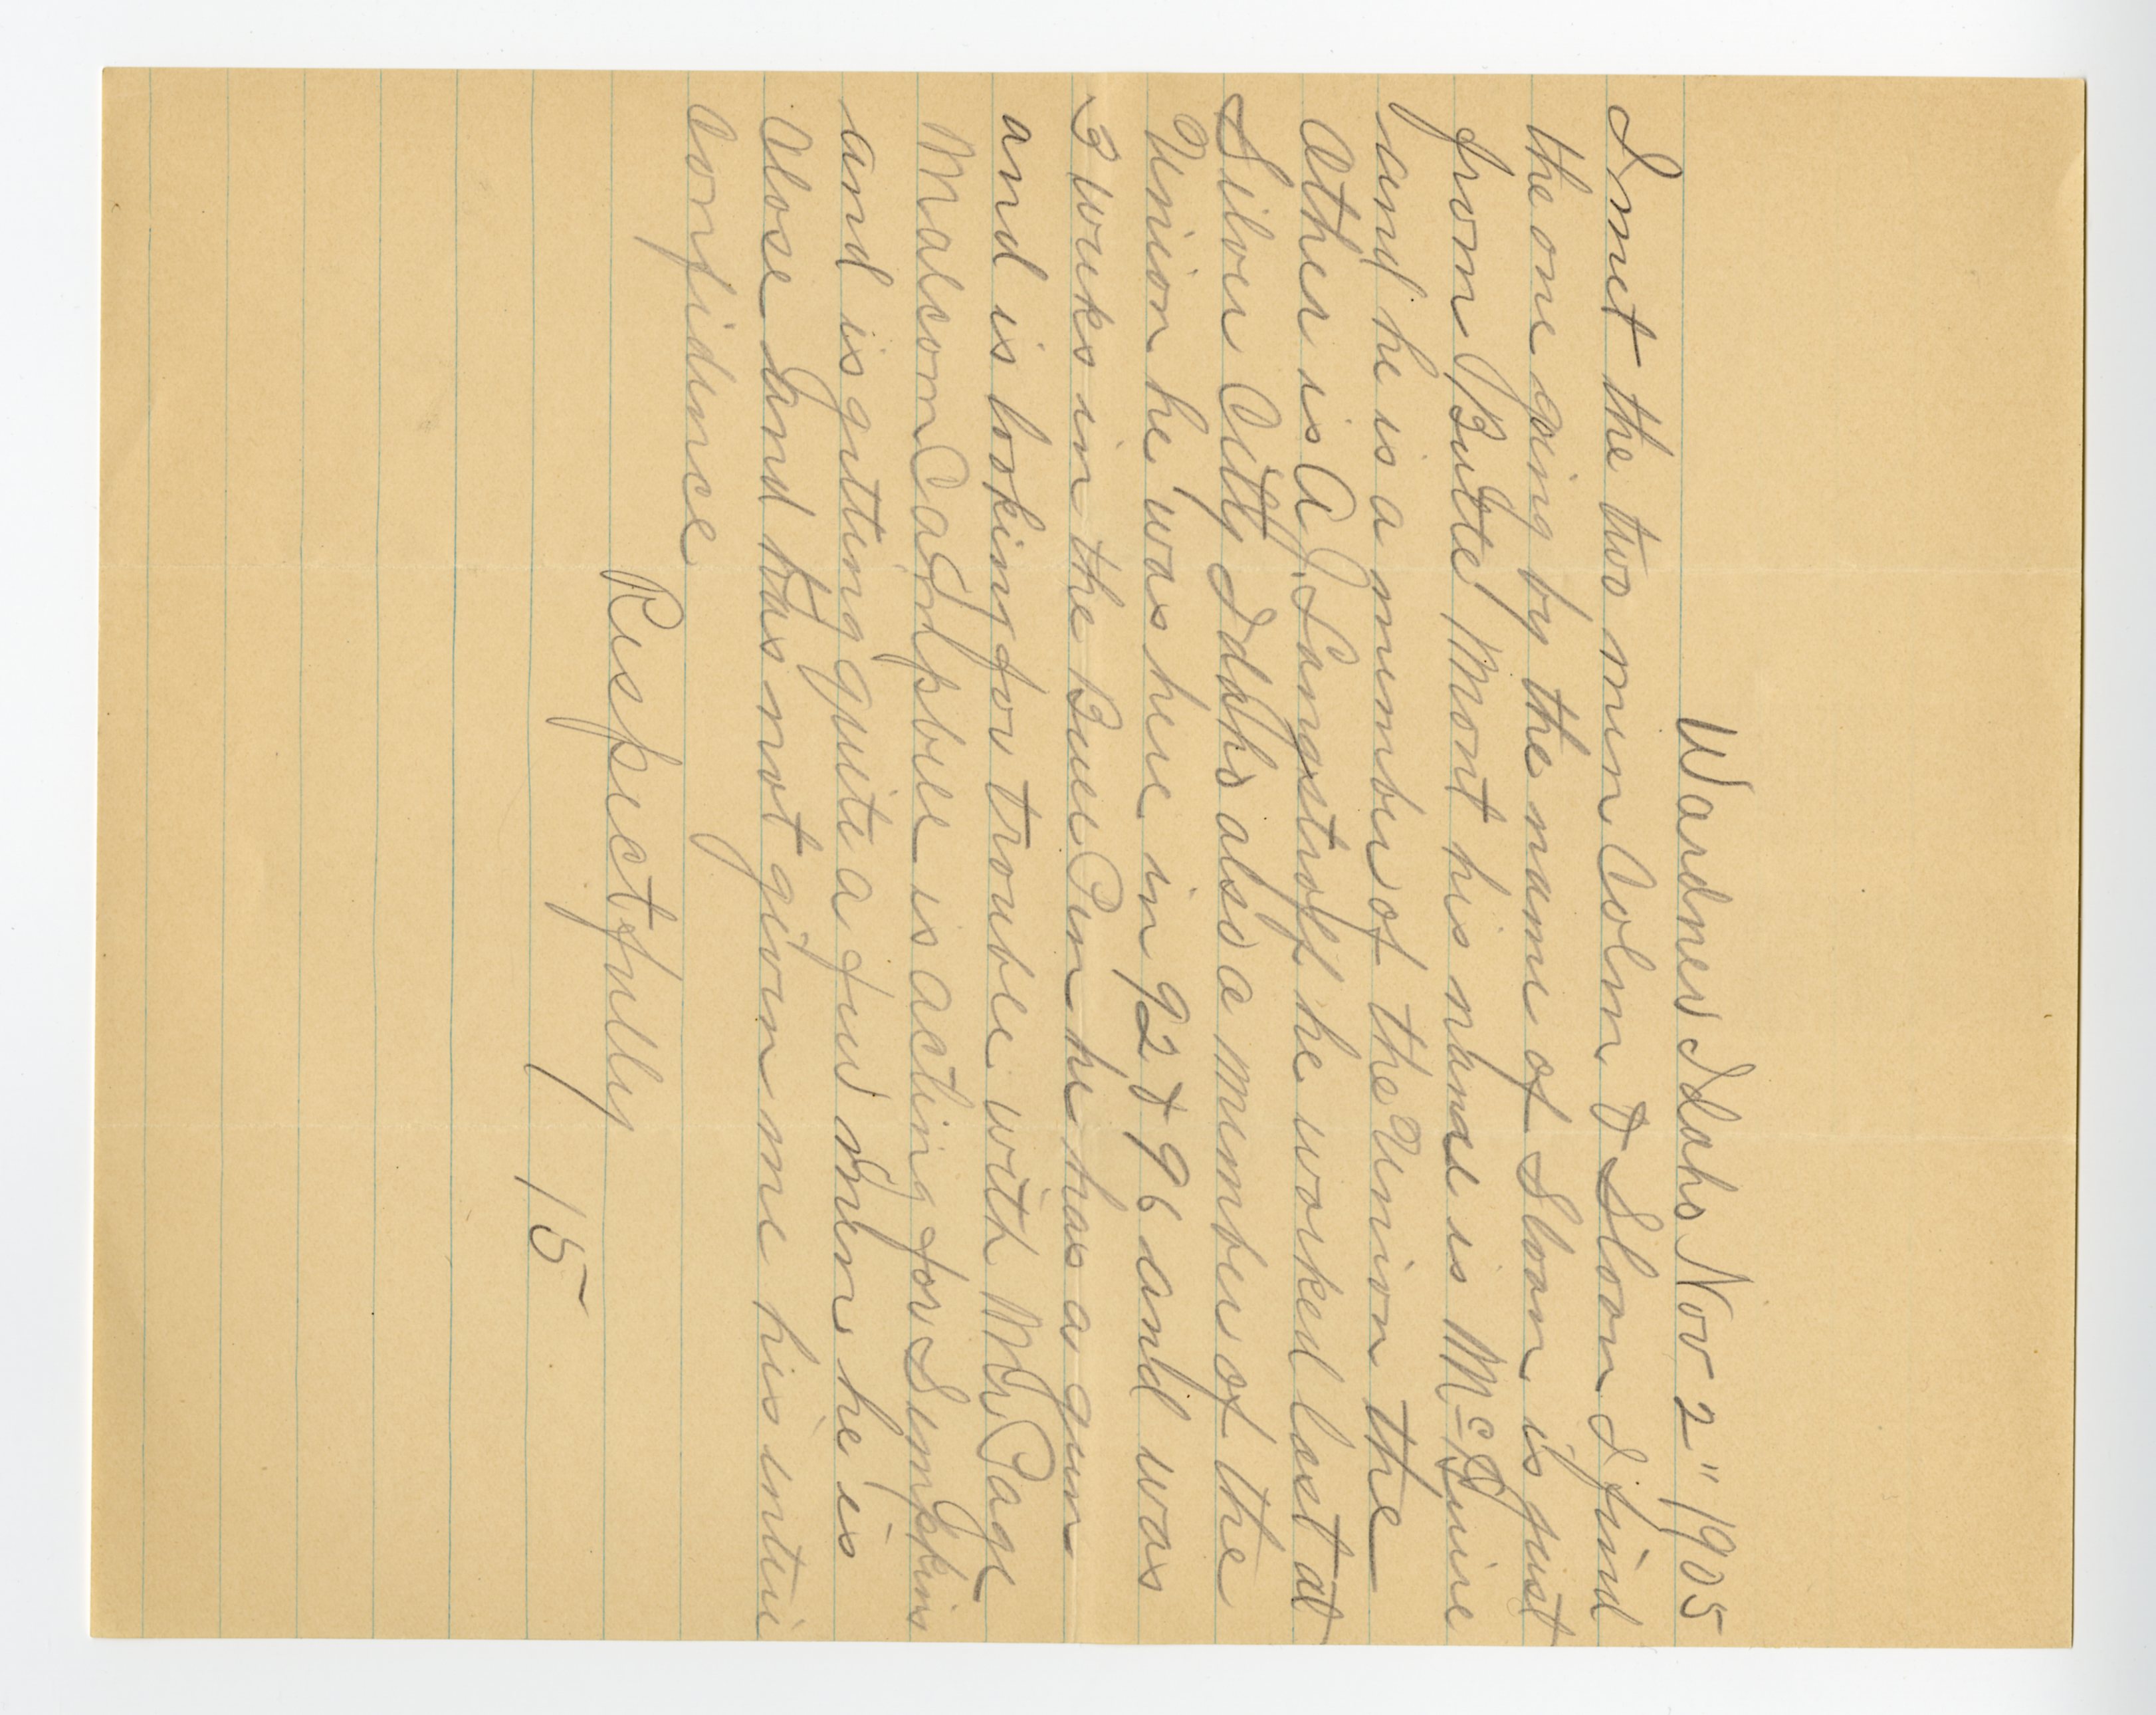 Wardner Idaho Nov 2" 1905
I met the two men Colm & Sloan I find
the one going by the name of Sloan is just
from Butte Mont his name is McGuire
and he is a member of the Union the
Other is A J. Langstroff he worked last at
Silver City Idaho also a member of the
Union he was here in 92 & 96 and was
3 weeks in the Bull Pen he has a gun
and is looking for trouble with Mr Page
Malcom Campbell is acting for Simpkins
and is getting quite a few men he is
Close and has not given me his entire
Confidence
Respectfully
15